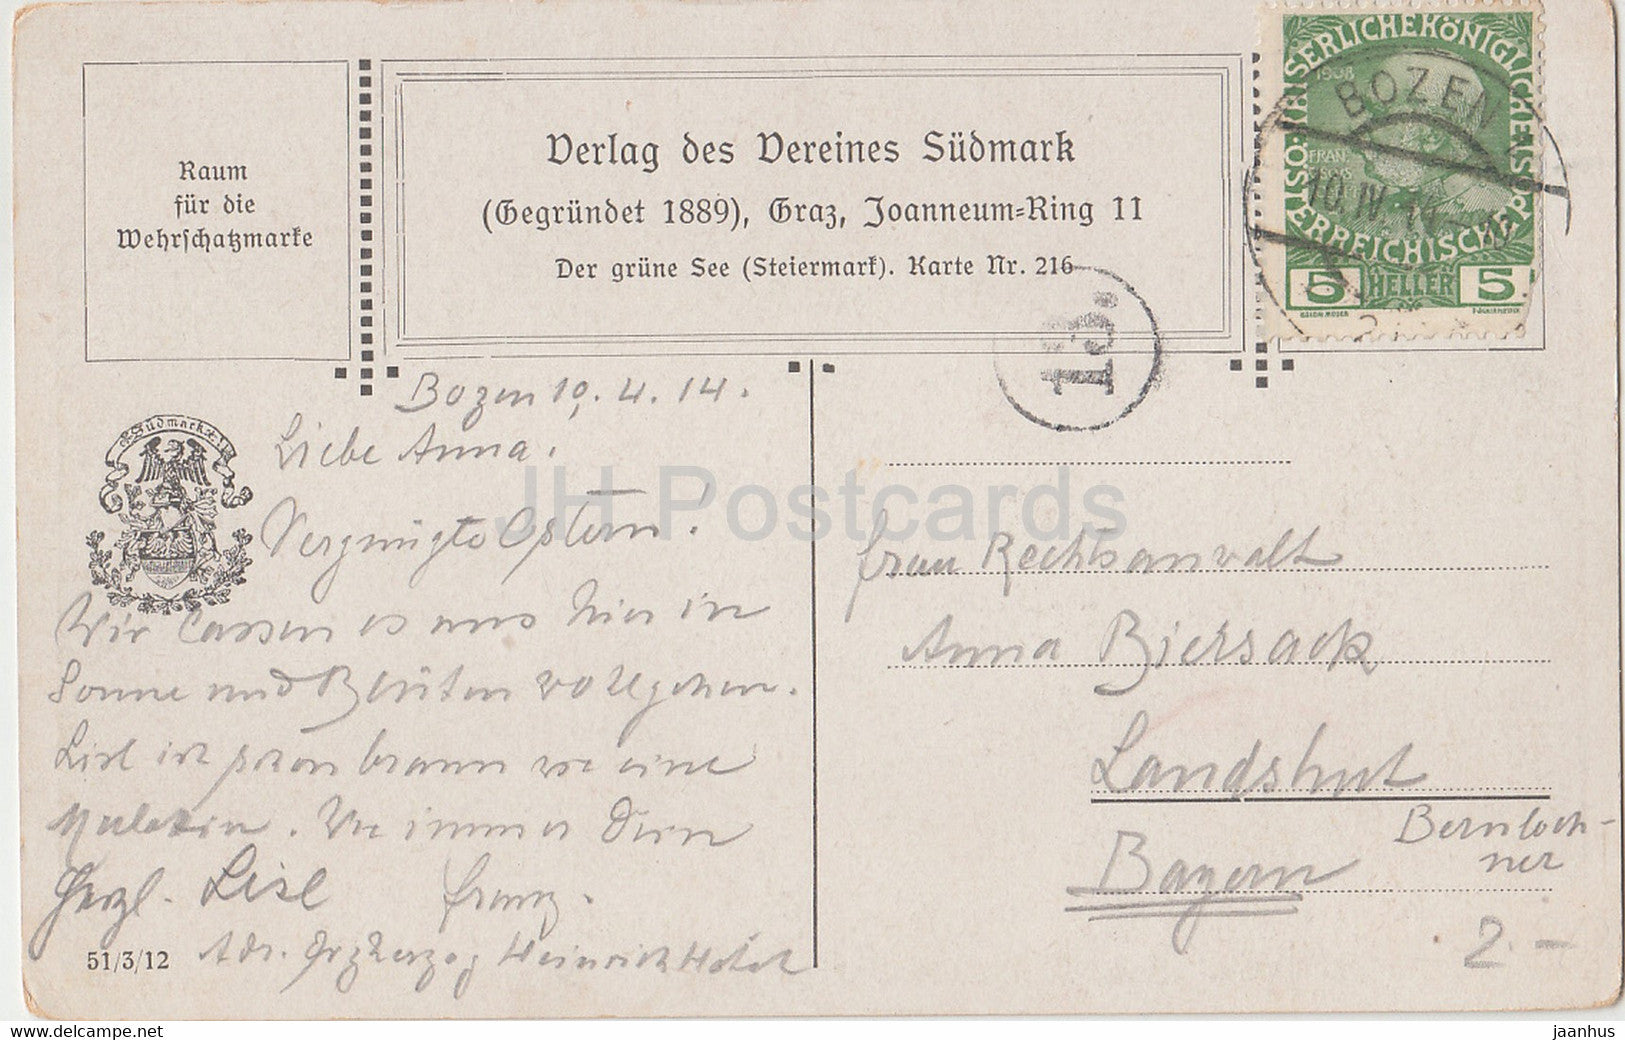 Raum
für die
Wehrschatzmarke
Verlag des Vereines Südmark
(Gegründet 1889), Graz, Joanneum-Ring 11
Der grüne See (Steiermark). Karte Nr. 216
KAISERLICHE KÖNIGLICHE ÖSTERREICHISCHE POST
1908
FRANZ
5 HELLER 5
BOZEN
10.IV.14
13.
Südmark
Bozen 10.4.14.
Liebe Anna.
Vergnügte Ostern!
Wir lassen es uns hier in
Sonne und Blüten wohlgehen.
Lisl ist schon braun wie eine
Mulattin. Wie immer Dein
Herzl. Lisl Franz.
Adr. Erzherzog Heinrich Hotel
51/3/12
Frau Rechtsanwalt
Anna Biersack
Landshut
Bayern
Bernloch-
ner
2.-
JH Postcards
www.delcampe.net
jaanhus